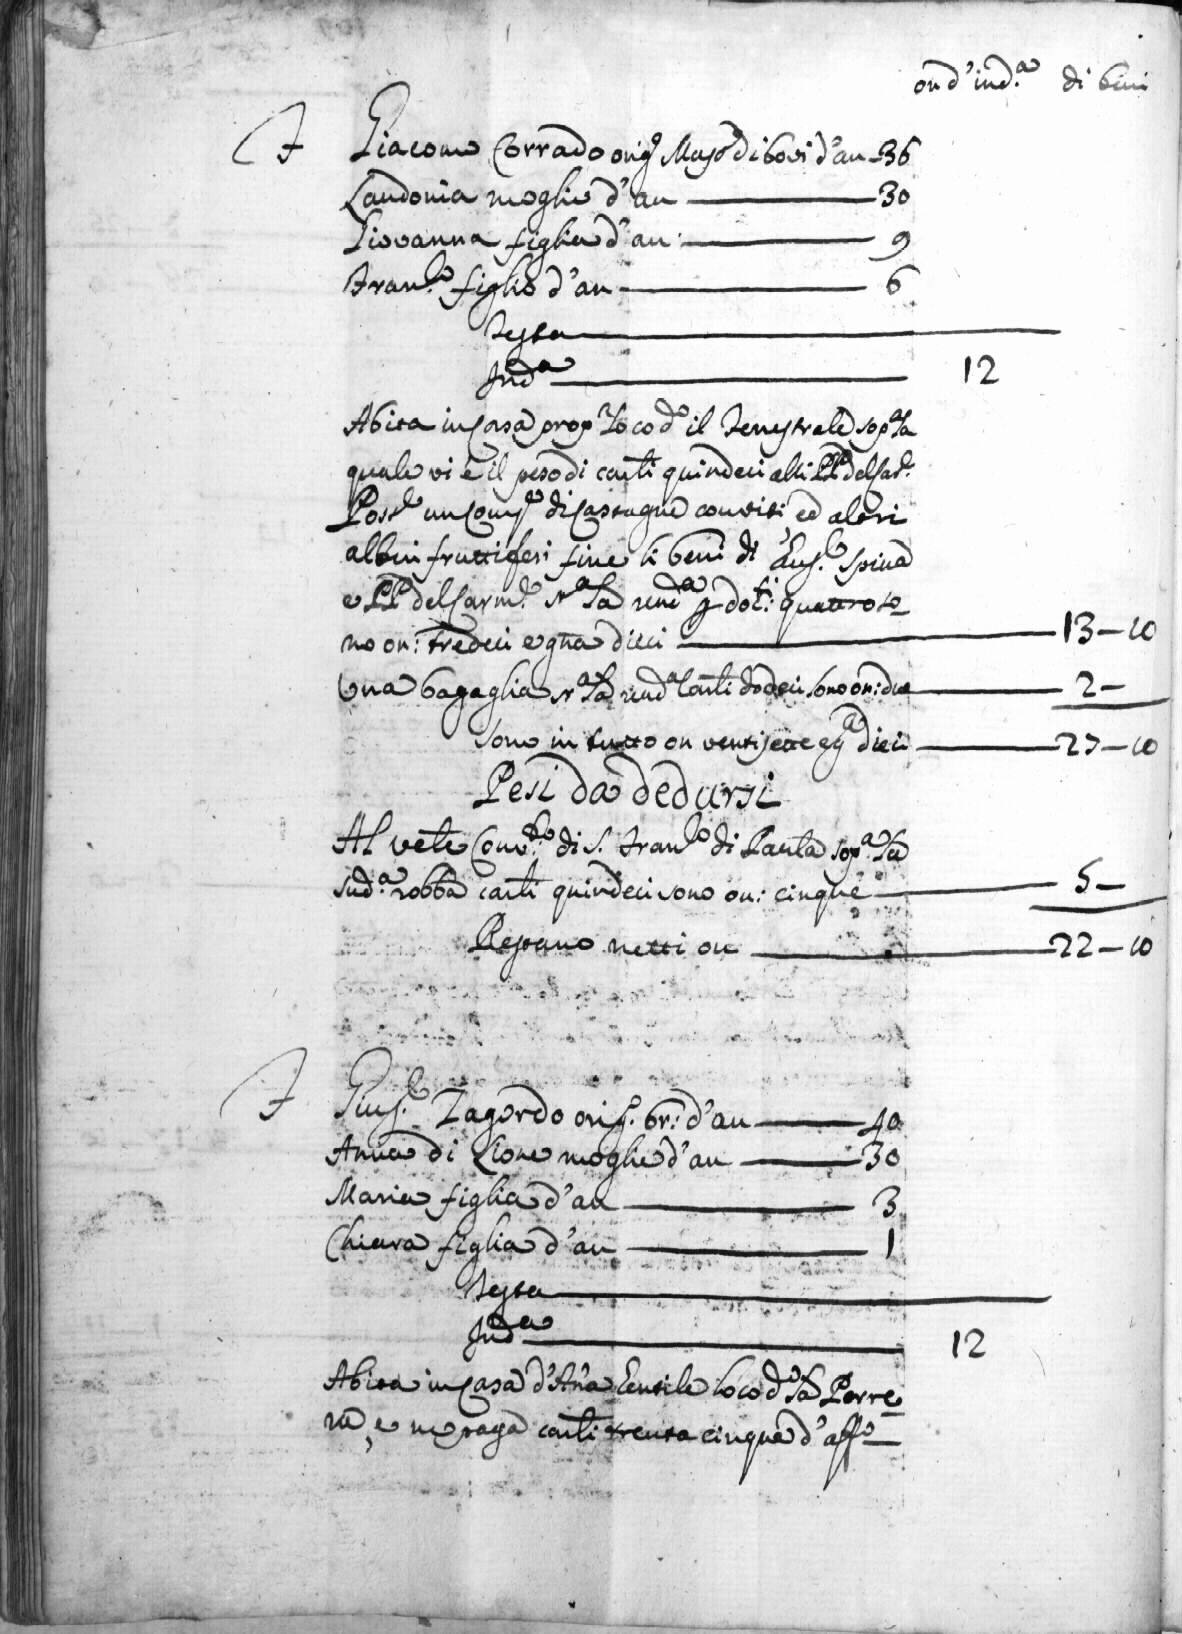 on d'ind.a di beni
F Giacomo Corrado orig.o Mass.o di bovi d'an 36
Laudonia moglie d'an 30
Giovanna figlia d'an 9
Fran.co figlio d'an 6
Testa
Ind.a 12
Abita in Casa prop.a loco d.o il Fenestrale sop.a la
quale vi è il peso di carli quindeci alli PP del Car.e
Poss.e un Com.o di Castagne con viti, ed altri
alberi fruttiferi fine li beni di Aug.lo Spina
e PP del Carm.e st.a la rend.a p dot.i quattro so
no on: tredeci e gna dieci 13-10
Una bagaglia st.a la rend.a Carli dodeci sono on: due 2-
sono in tutto on ventisette e g.a dieci 27-10
Pesi da dedursi
Al ven.le Conv.to di S. Fran.co di Paula sop.a la
sud.a robba carli quindeci sono on: cinque 5-
Restano netti on 22-10
F Gius.e Zagordo orig.o br: d'an 40
Anna di Lione moglie d'an 30
Maria figlia d'an 3
Chiara figlia d'an 1
Testa
Ind.a 12
Abita in Casa d'Anna Gentile loco d.o la Porre
na, e ne paga carli trenta cinque d'aff.o